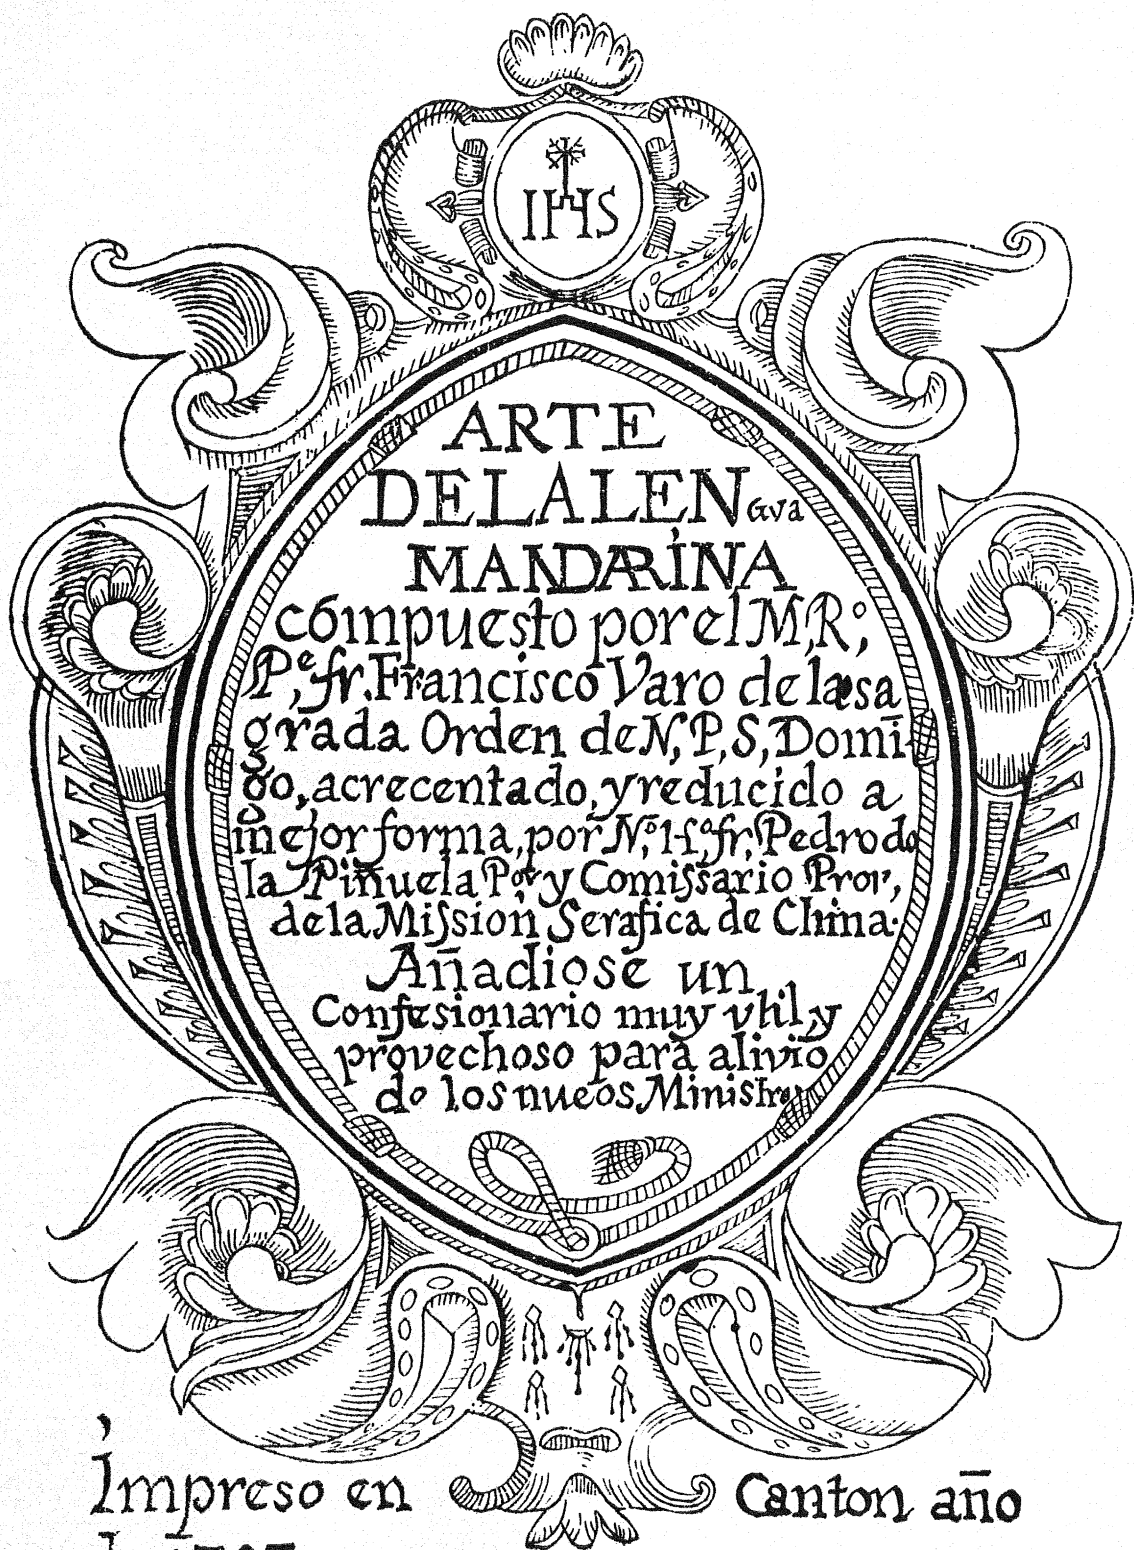 IHS
ARTE
DELALENGVa
MANDARINA
cómpuesto por el M, R.º,
P,e fr. Francisco Varo de la sa
grada Orden de N, P, S, Domī
go, acrecentado, y reducido a
mejor forma, por N,º H.º fr, Pedro de
la Piñuela P.or y Comissario Prov,
de la Mission Serafica de China.
Añadiose un
Confesionario muy vtil, y
provechoso para alivio
de los nueos Ministros
Impreso en Canton año
de 1703